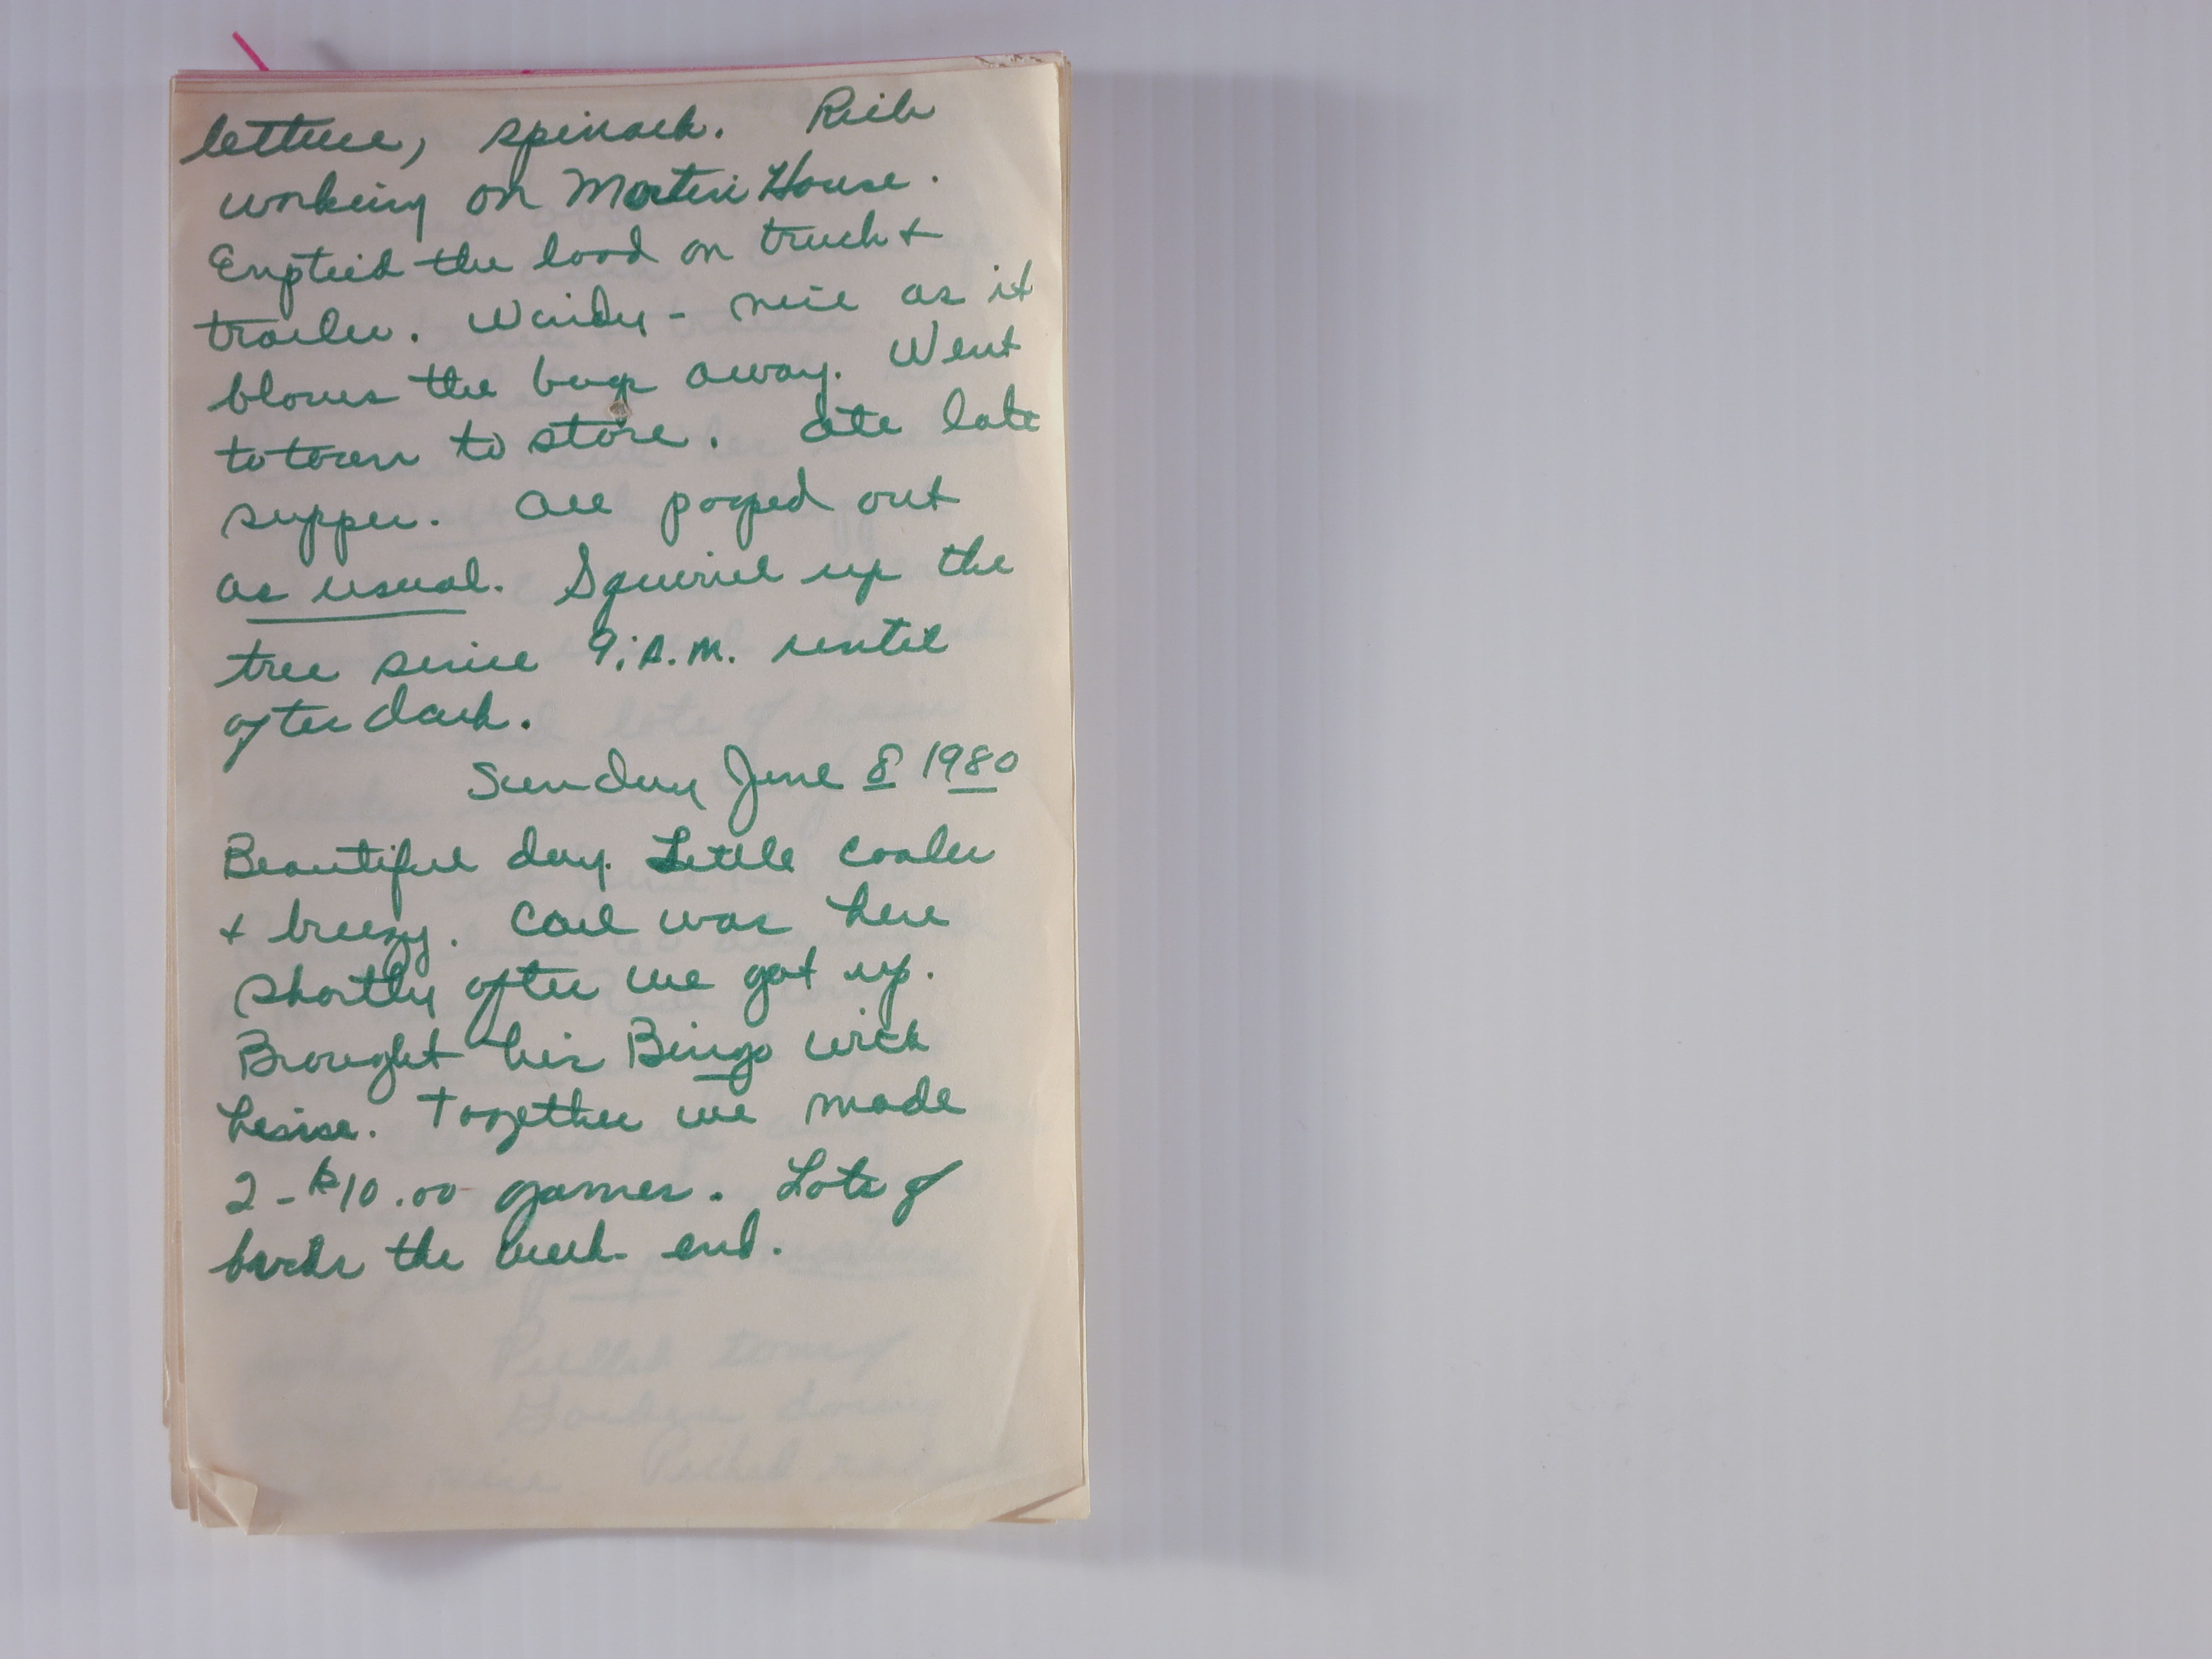 lettuce, spinach. Rich
working on Martin House.
Emptied the load on truck +
trailer. Windy - nice as it
blows the bugs away. Went
to town to store. Ate late
supper. All pooped out
as usual. Squirrel up the
tree since 9:A.M. until
after dark.
Sunday June 8 1980
Beautiful day. Little cooler
+ breezy. Carl was here
shortly after we got up.
Brought his Bingo with
Together we made
2-$10.00 games. Lots of
birds the week end.